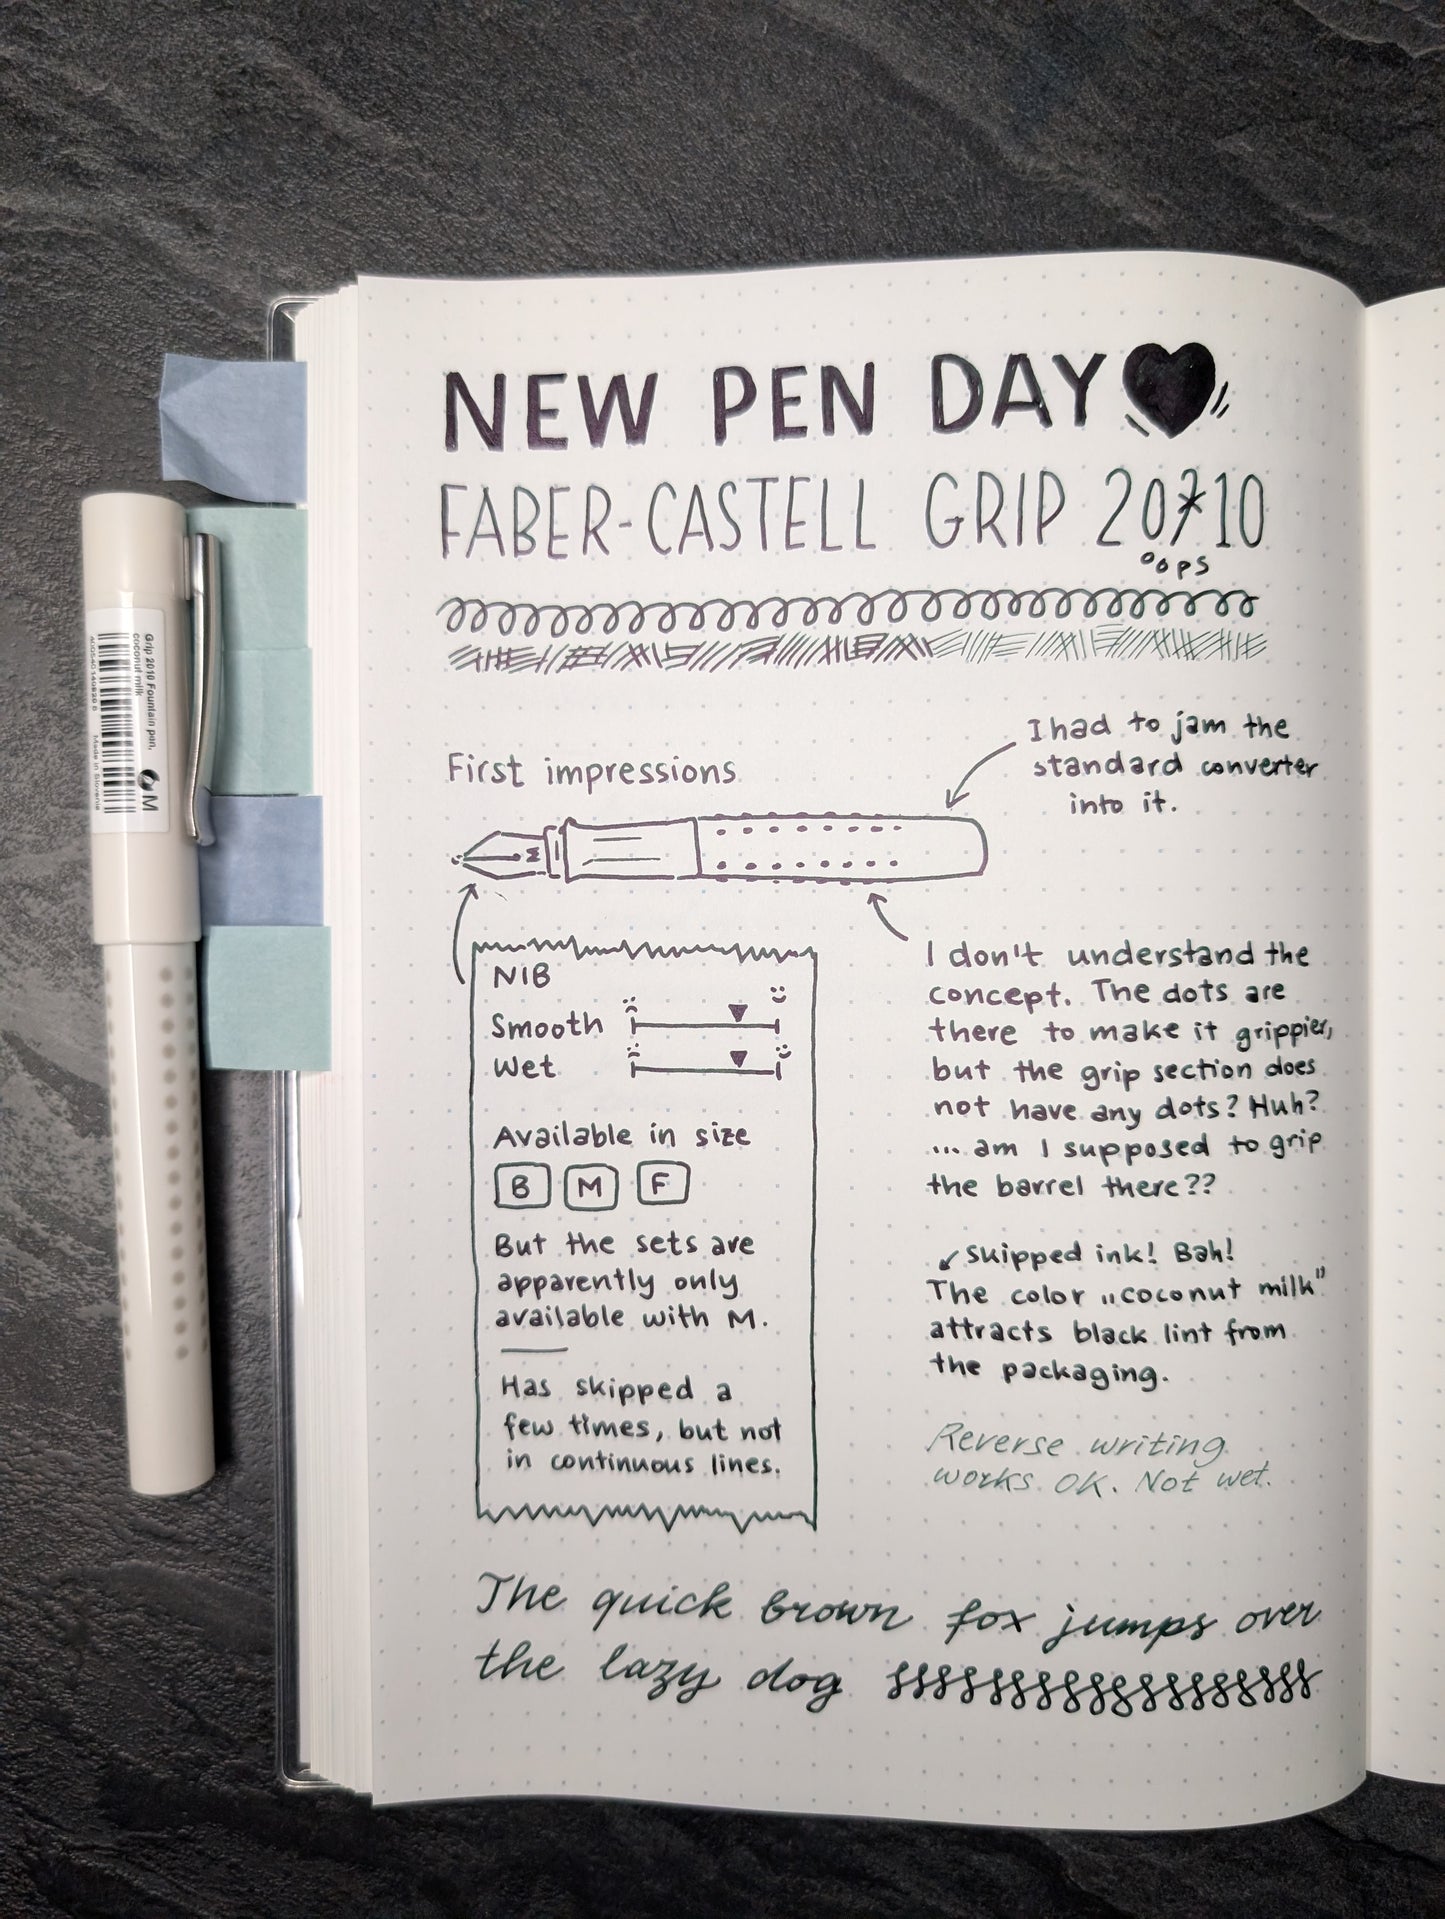 NEW PEN DAY
FABER-CASTELL GRIP 20710
oops
First impressions
I had to jam the
standard converter
into it.
M
NIB
Smooth
Wet
Available in size
B M F
But the sets are
apparently only
available with M.
Has skipped a
few times, but not
in continuous lines.
I don't understand the
concept. The dots are
there to make it grippier,
but the grip section does
not have any dots? Huh?
... am I supposed to grip
the barrel there??
↙ skipped ink! Bah!
The color „coconut milk"
attracts black lint from
the packaging.
Reverse writing
works OK. Not wet.
The quick brown fox jumps over
the lazy dog
Grip 2010 Fountain pen,
coconut milk
M
Made in Slovenia